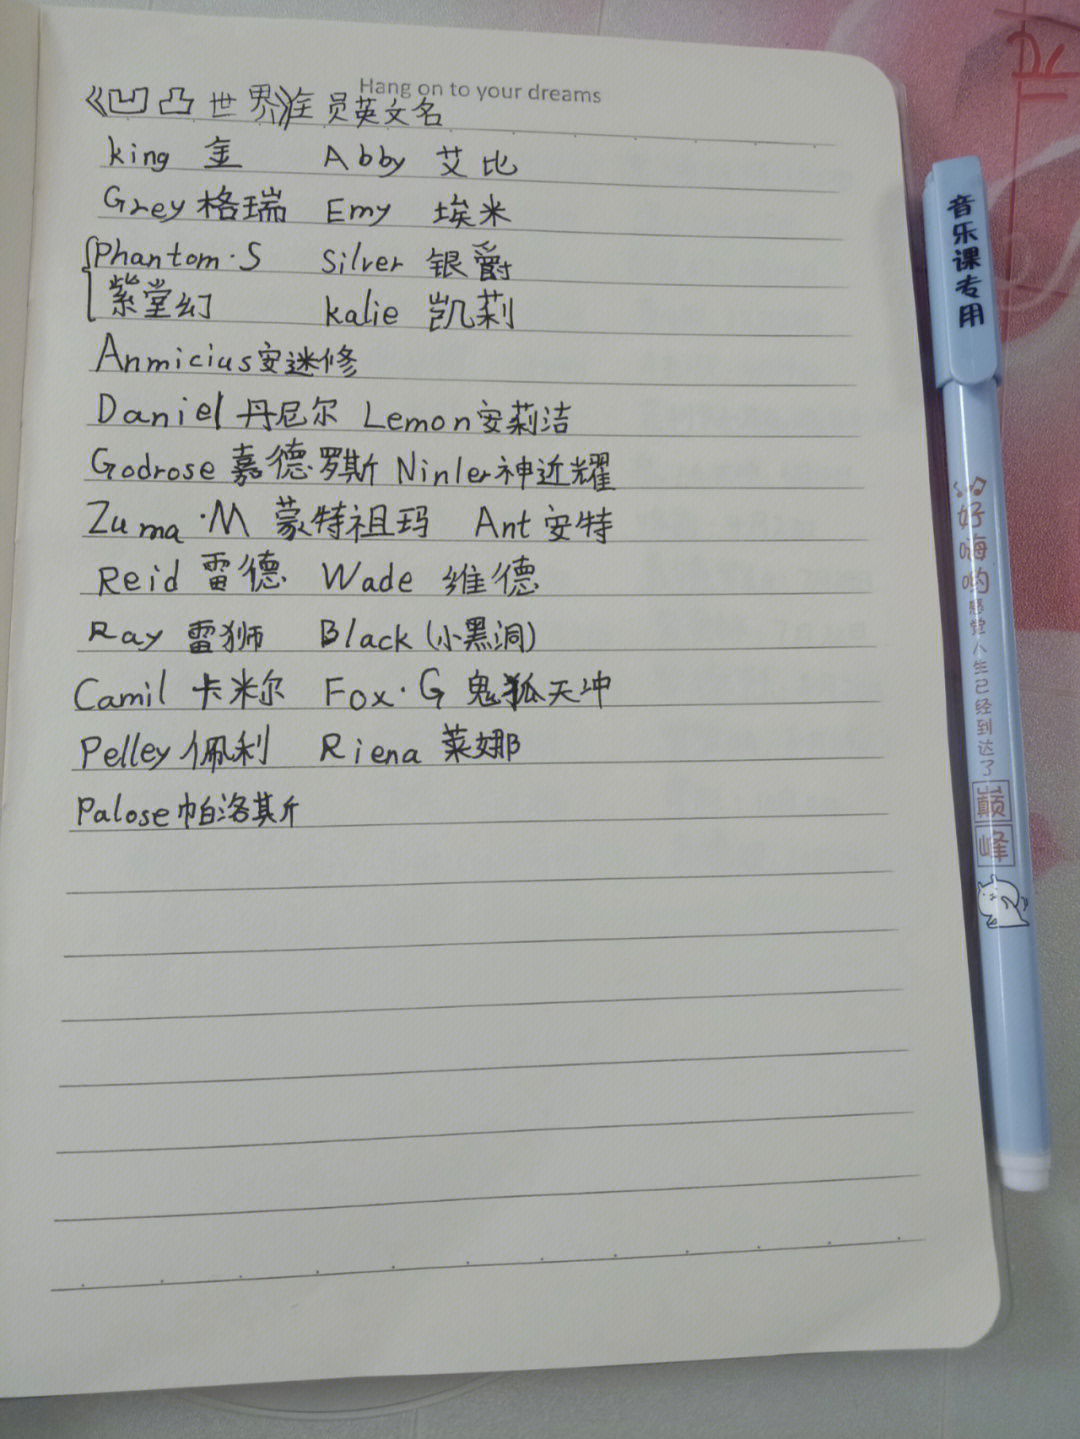 Hang on to your dreams
《凹凸世界》全员英文名
king 金 Abby 艾比
Grey 格瑞 Emy 埃米
Phantom·S Silver 银爵
紫堂幻 kalie 凯莉
Anmicius 安迷修
Daniel 丹尼尔 Lemon 安莉洁
Godrose 嘉德罗斯 Ninler 神近耀
Zuma·M 蒙特祖玛 Ant 安特
Reid 雷德 Wade 维德
Ray 雷狮 Black (小黑洞)
Camil 卡米尔 Fox·G 鬼狐天冲
Pelley 佩利 Riena 莱娜
Palose 帕洛其斤
音乐课专用
好嗨哟
感觉人生已经到达了
巅峰